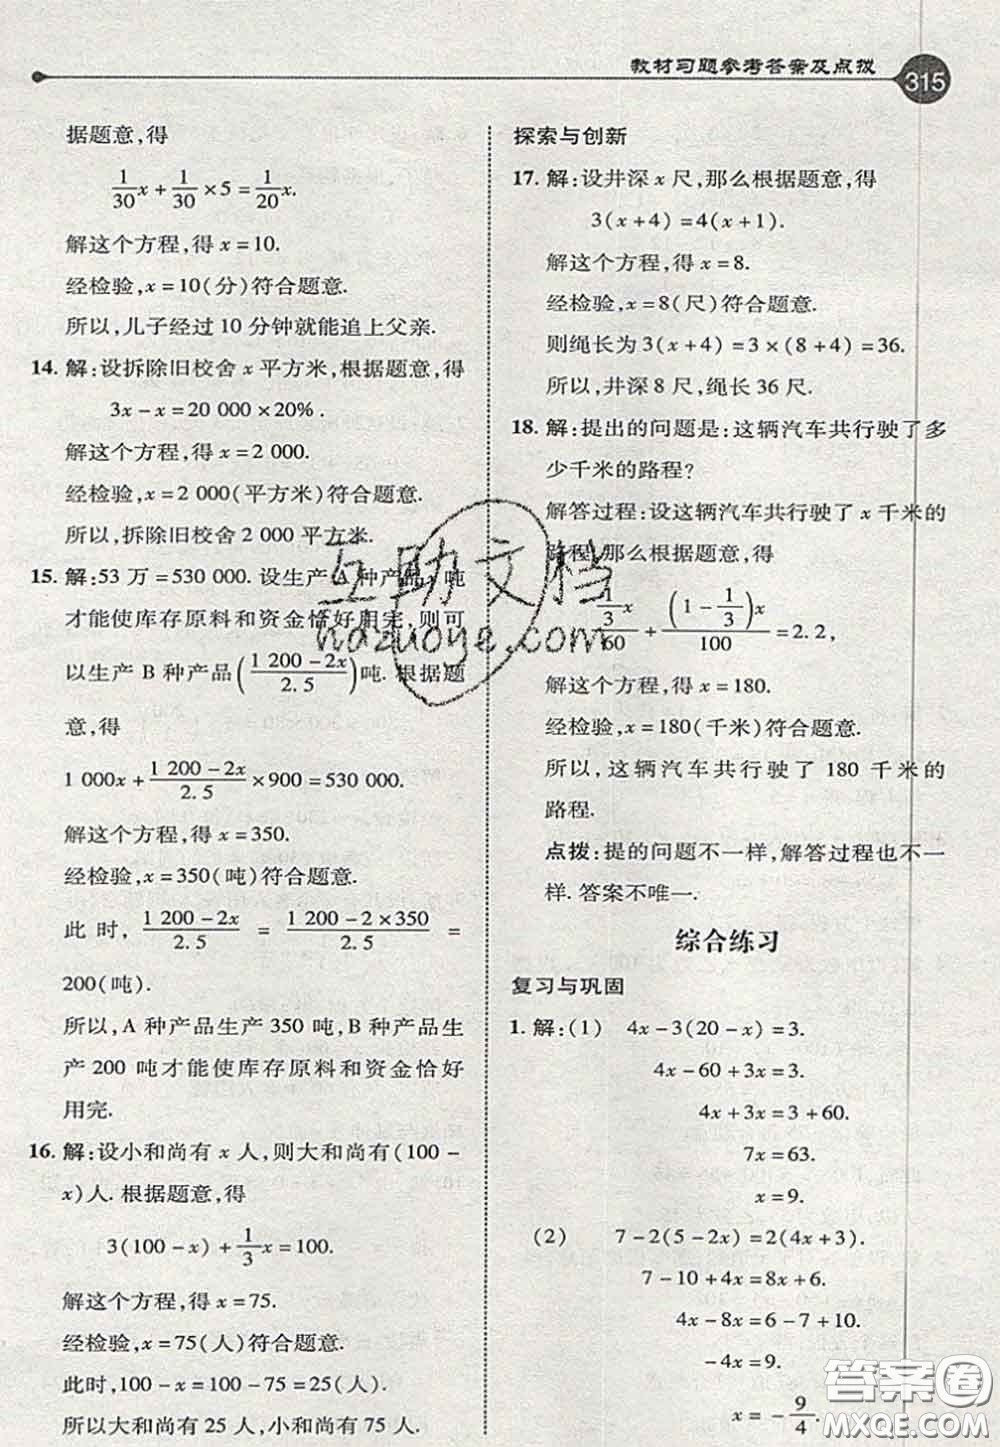 教材习题参考答案及点拨 315
据题意,得
1/30x+1/30×5=1/20x.
解这个方程,得 x=10.
经检验,x=10(分)符合题意.
所以,儿子经过 10 分钟就能追上父亲.
14. 解:设拆除旧校舍 x 平方米,根据题意,得
3x-x=20 000×20%.
解这个方程,得 x=2 000.
经检验,x=2 000(平方米)符合题意.
所以,拆除旧校舍 2 000 平方米.
15. 解:53 万=530 000. 设生产 A 种产品 x 吨
才能使库存原料和资金恰好用完,则可
以生产 B 种产品((1 200-2x)/2.5)吨. 根据题
意,得
1 000x+(1 200-2x)/2.5×900=530 000.
解这个方程,得 x=350.
经检验,x=350(吨)符合题意.
此时,(1 200-2x)/2.5=(1 200-2×350)/2.5=
200(吨).
所以,A 种产品生产 350 吨,B 种产品生
产 200 吨才能使库存原料和资金恰好
用完.
16. 解:设小和尚有 x 人,则大和尚有(100-
x)人. 根据题意,得
3(100-x)+1/3x=100.
解这个方程,得 x=75.
经检验,x=75(人)符合题意.
此时,100-x=100-75=25(人).
所以大和尚有 25 人,小和尚有 75 人.
探索与创新
17. 解:设井深 x 尺,那么根据题意,得
3(x+4)=4(x+1).
解这个方程,得 x=8.
经检验,x=8(尺)符合题意.
则绳长为 3(x+4)=3×(8+4)=36.
所以,井深 8 尺,绳长 36 尺.
18. 解:提出的问题是:这辆汽车共行驶了多
少千米的路程?
解答过程:设这辆汽车共行驶了 x 千米的
路程,那么根据题意,得
(1/3x)/60+((1-1/3)x)/100=2.2,
解这个方程,得 x=180.
经检验,x=180(千米)符合题意.
所以,这辆汽车共行驶了 180 千米的
路程.
点拨:提的问题不一样,解答过程也不一
样. 答案不唯一.
综合练习
复习与巩固
1. 解:(1) 4x-3(20-x)=3.
4x-60+3x=3.
4x+3x=3+60.
7x=63.
x=9.
(2) 7-2(5-2x)=2(4x+3).
7-10+4x=8x+6.
4x-8x=6-7+10.
-4x=9.
x=-9/4.
互助文档
hazuoye.com
答案圈
MXQE.COM